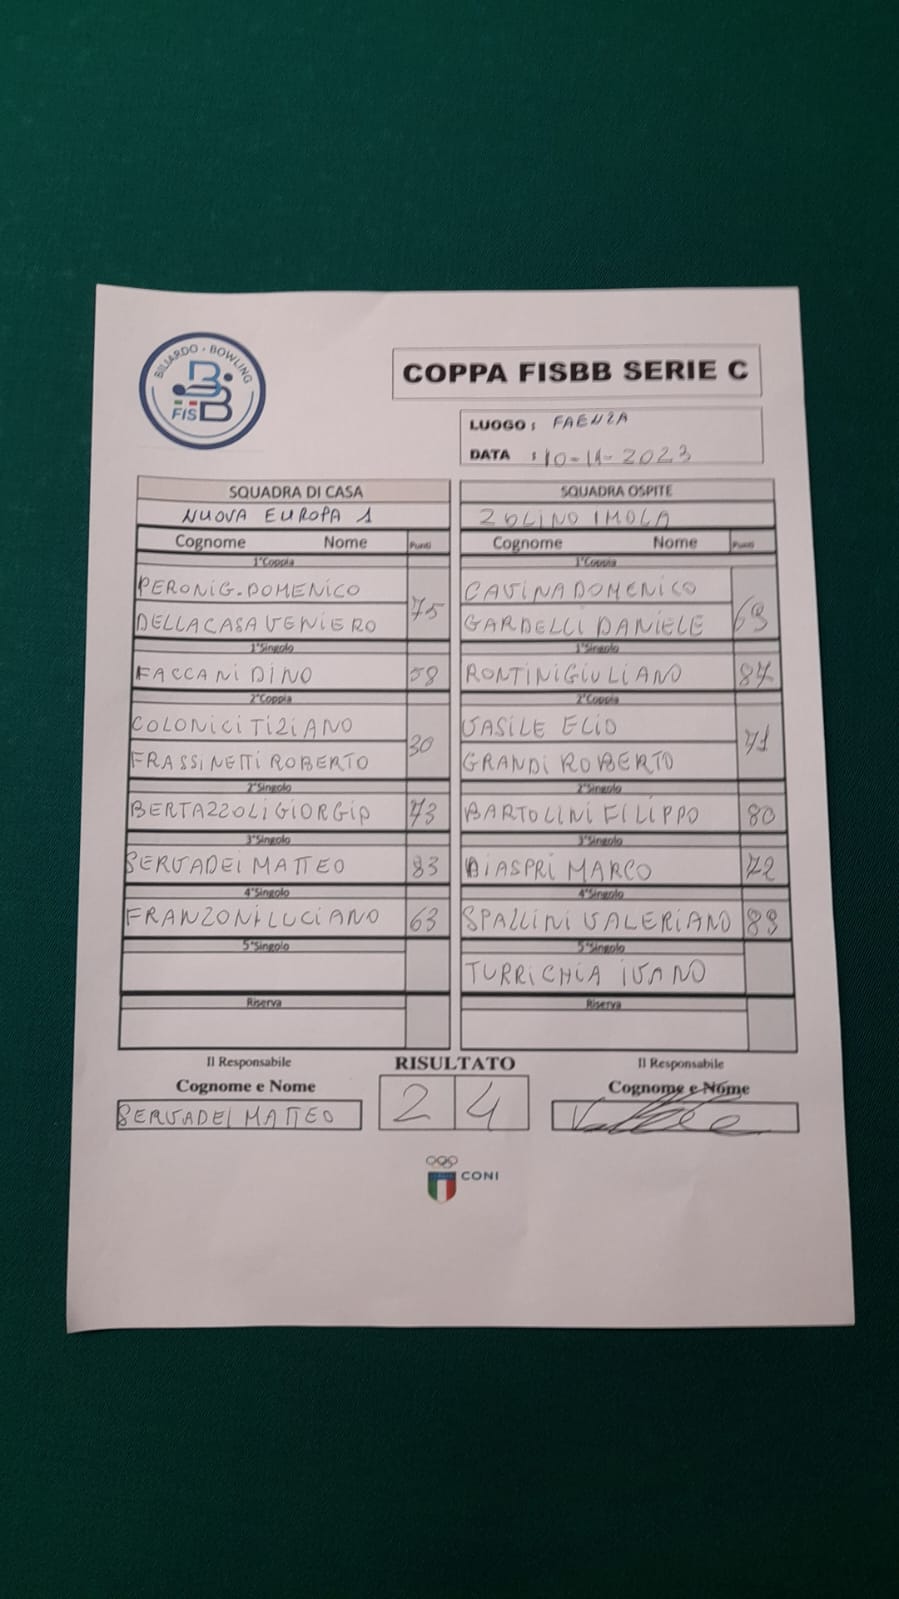 BILIARDO - BOWLING
FISBB
COPPA FISBB SERIE C
LUOGO : FAENZA
DATA : 10-11-2023
SQUADRA DI CASA
NUOVA EUROPA 1
Cognome Nome Punti
1°Coppia
PERONI G. DOMENICO
75
DELLACASA VENIERO
1°Singolo
FACCANI DINO 58
2°Coppia
COLONICI TIZIANO
30
FRASSINETTI ROBERTO
2°Singolo
BERTAZZOLI GIORGIO 73
3°Singolo
SERVADEI MATTEO 83
4°Singolo
FRANZONI LUCIANO 63
5°Singolo
Riserva
SQUADRA OSPITE
ZOLINO IMOLA
Cognome Nome Punti
1°Coppia
CAVINA DOMENICO
GARDELLI DANIELE
1°Singolo
RONTINI GIULIANO
2°Coppia
VASILE ELIO
71
GRANDI ROBERTO
2°Singolo
BARTOLINI FILIPPO 80
3°Singolo
BIASPRI MARCO 72
4°Singolo
SPALLINI VALERIANO
5°Singolo
TURRICHIA IVANO
Riserva
Il Responsabile
Cognome e Nome
SERVADEI MATTEO
RISULTATO
2 4
Il Responsabile
Cognome e Nome
CONI